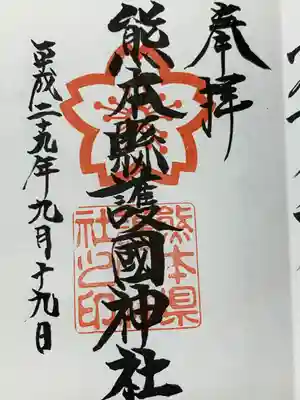 奉拝
熊本縣護國神社
平成二十九年九月十九日
熊本県
社之印